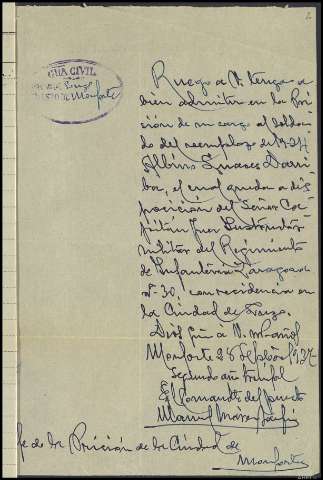 2
GUA. CIVIL
Monforte
Ruego a V. tenga a
bien admitir en la Pri
sión de su cargo al solda
do del reemplazo de 1924
Albino
ba, el cual queda a dis
posición del Señor Ca
pitán Juez Instructor
militar del Regimiento
de Infantería Zaragoza
nº 30, con residencia en
la Ciudad de Lugo.
Dios gue a V. m. años
Monforte 28 Sepbre 1937
Segundo año triunfal
El Comandte del puesto
Manuel
fe de la Prisión de la Ciudad de
Monforte